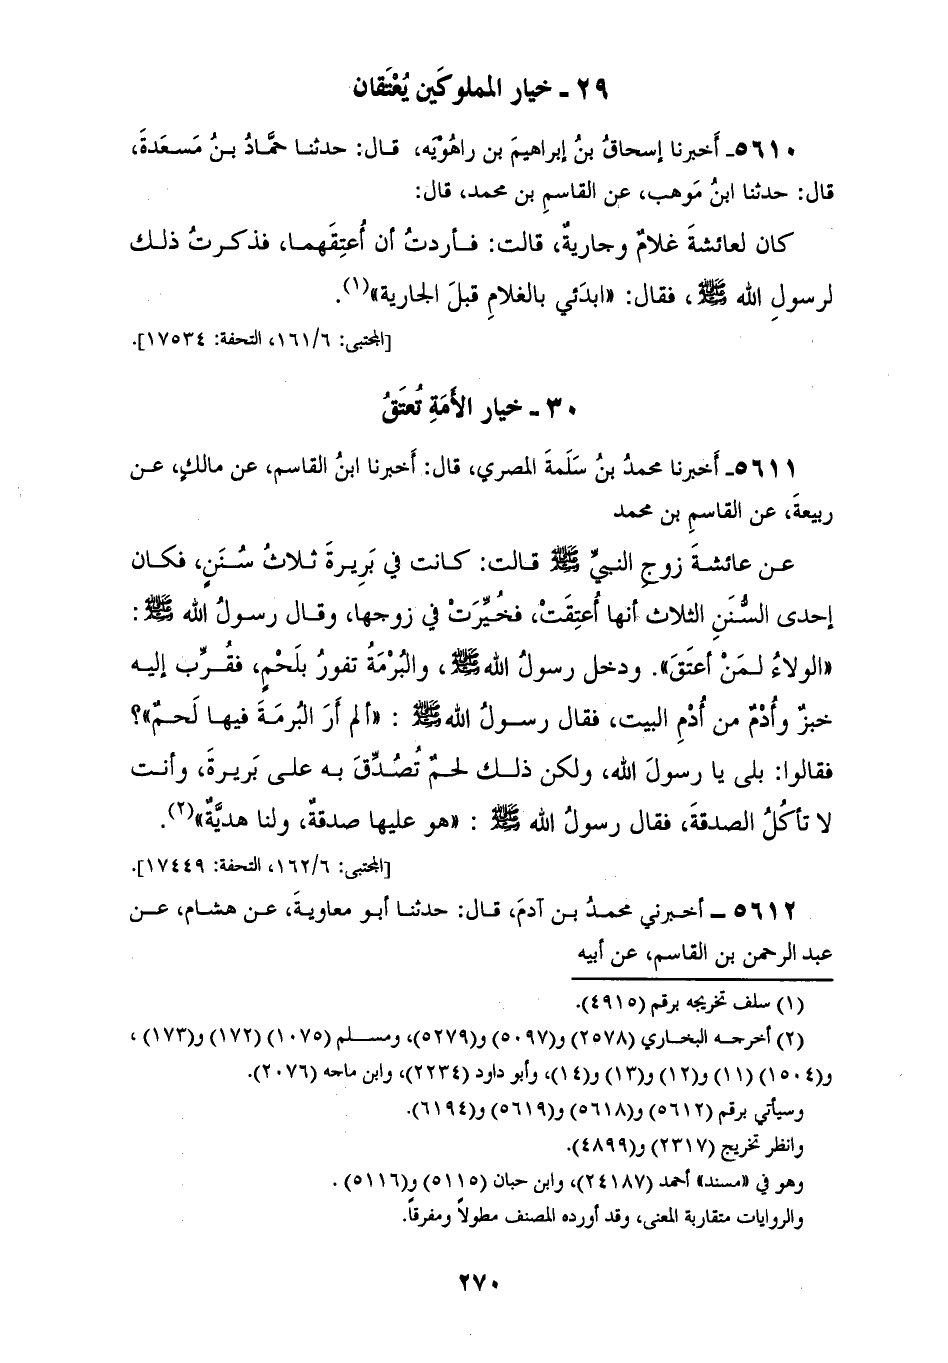 ٢٩ - خيار المملوكَين يُعْتَقان
٥٦١٠- أَخبرنا إسحاقُ بنُ إبراهيمَ بن راهُوْيَه، قال: حدثنا حمَّادُ بنُ مَسعَدةَ،
قال: حدثنا ابنُ مَوهب، عن القاسمِ بن محمد، قال:
كان لعائشةَ غلامٌ وجاريةٌ، قالت: فأردتُ أن أُعتِقَهما، فذكرتُ ذلك
لرسولِ الله ﷺ، فقال: «ابدَئي بالغلامِ قبلَ الجارية»(١).
[المجتبى: ١٦١/٦، التحفة: ١٧٥٣٤].
٣٠ - خيار الأَمَةِ تُعتَقُ
٥٦١١- أَخبرنا محمدُ بنُ سَلَمةَ المصري، قال: أَخبرنا ابنُ القاسم، عن مالكٍ، عن
ربيعةَ، عن القاسمِ بن محمد
عن عائشةَ زوجِ النبيِّ ﷺ قالت: كانت في بَرِيرةَ ثلاثُ سُنَنٍ، فكان
إحدى السُّنَنِ الثلاث أنها أُعتِقَتْ، فخُيِّرَتْ في زوجها، وقال رسولُ الله ﷺ:
«الولاءُ لـمَنْ أَعتَقَ». ودخل رسولُ الله ﷺ، والبُرْمَةُ تفورُ بلَحْمٍ، فقُرِّب إليه
خبزٌ وأُدْمٌ من أُدْمِ البيت، فقال رسولُ الله ﷺ : «ألم أَرَ البُرمَةَ فيها لَحمٌ»؟
فقالوا: بلى يا رسولَ الله، ولكن ذلك لحمٌ تُصُدِّقَ به على بَريرةَ، وأنت
لا تأكُلُ الصدقةَ، فقال رسولُ الله ﷺ : «هو عليها صدقةٌ، ولنا هديَّةٌ»(٢).
[المجتبى: ١٦٢/٦، التحفة: ١٧٤٤٩].
٥٦١٢ - أخبرني محمدُ بن آدمَ، قال: حدثنا أبو معاويةَ، عن هشام، عن
عبد الرحمن بن القاسم، عن أبيه
(١) سلف تخريجه برقم (٤٩١٥).
(٢) أخرجه البخاري (٢٥٧٨) و(٥٠٩٧) و(٥٢٧٩)، ومسلم (١٠٧٥) (١٧٢) و(١٧٣) ،
و(١٥٠٤) (١١) و(١٢) و(١٣) و(١٤)، وأبو داود (٢٢٣٤)، وابن ماجه (٢٠٧٦).
وسيأتي برقم (٥٦١٢) و(٥٦١٨) و(٥٦١٩) و(٦١٩٤).
وانظر تخريج (٢٣١٧) و(٤٨٩٩).
وهو في «مسند» أحمد (٢٤١٨٧)، وابن حبان (٥١١٥) و(٥١١٦) .
والروايات متقاربة المعنى، وقد أورده المصنف مطولاً ومفرقاً.
٢٧٠